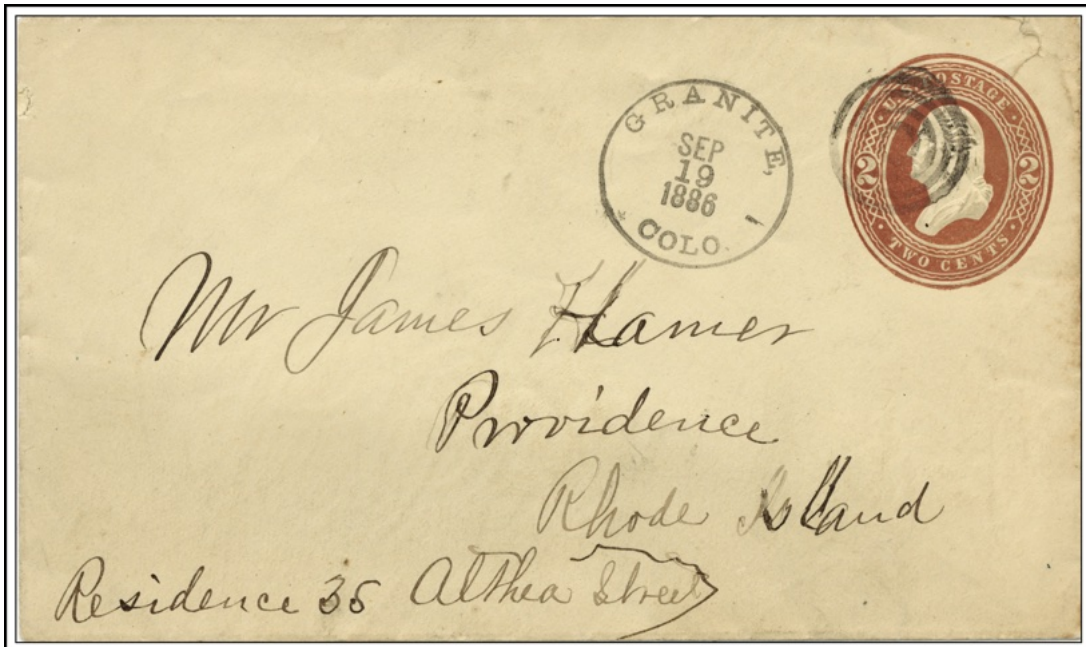 GRANITE,
SEP
19
1886
COLO.
U.S. POSTAGE
2 2
TWO CENTS
Mr James Hamer
Providence
Rhode Island
Residence 35 Althea Street